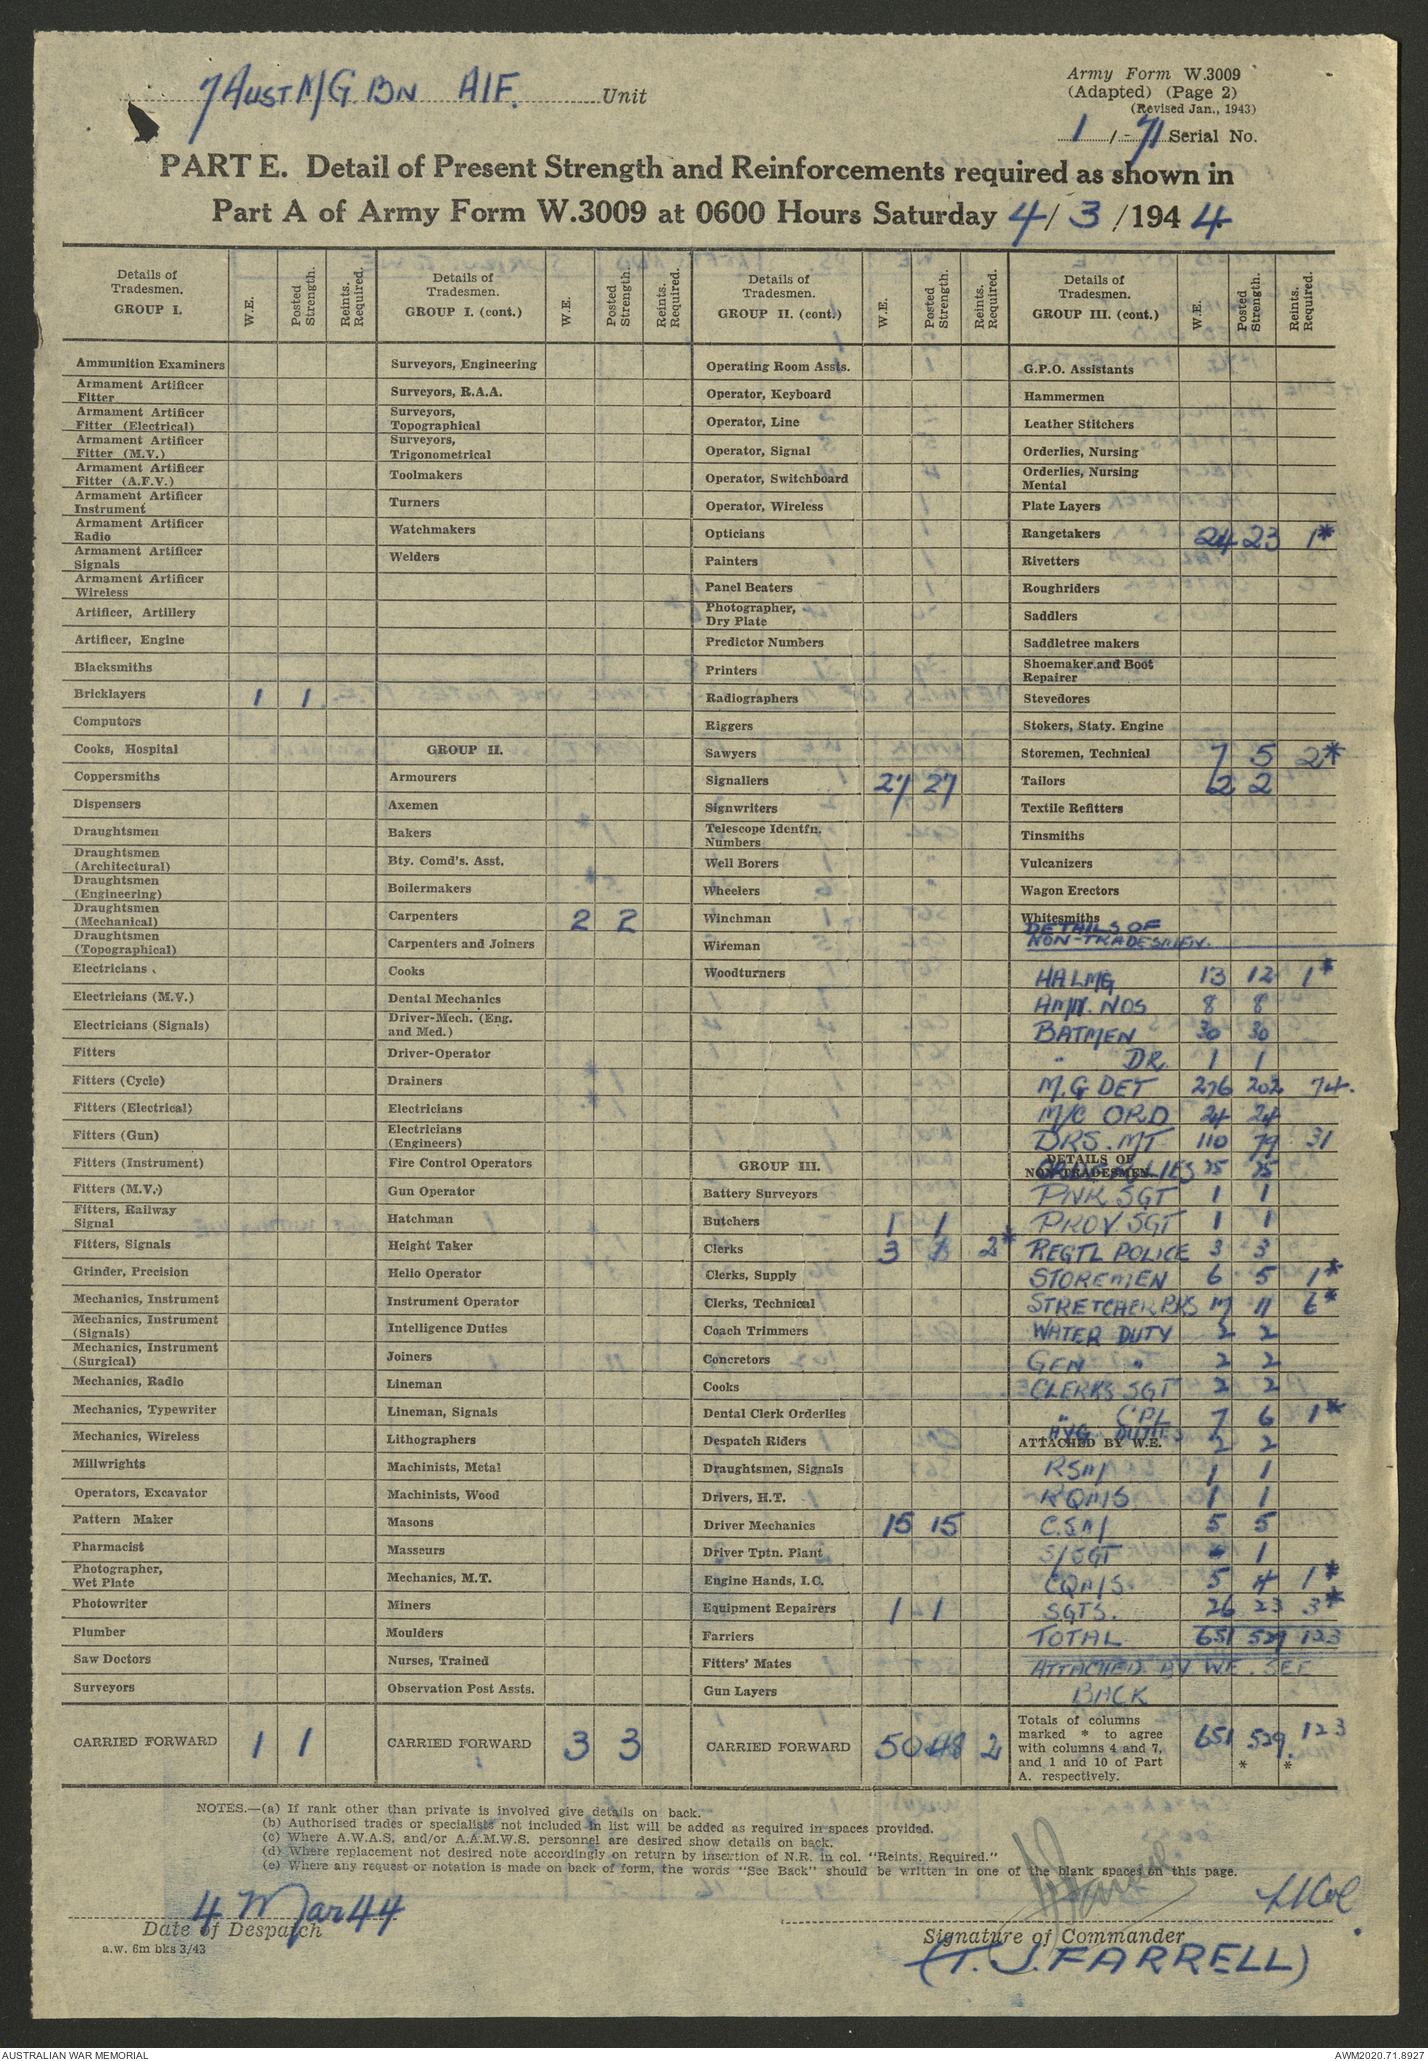 7 AUST M/G BN AIF. Unit
Army Form W.3009
(Adapted) (Page 2)
(Revised Jan., 1943)
1/-71 Serial No.
PART E. Detail of Present Strength and Reinforcements required as shown in
Part A of Army Form W.3009 at 0600 Hours Saturday 4/3/1944
Details of Tradesmen. GROUP I. W.E. Posted Strength. Reints. Required.
Ammunition Examiners
Armament Artificer Fitter
Armament Artificer Fitter (Electrical)
Armament Artificer Fitter (M.V.)
Armament Artificer Fitter (A.F.V.)
Armament Artificer Instrument
Armament Artificer Radio
Armament Artificer Signals
Armament Artificer Wireless
Artificer, Artillery
Artificer, Engine
Blacksmiths
Bricklayers 1 1
Computors
Cooks, Hospital
Coppersmiths
Dispensers
Draughtsmen
Draughtsmen (Architectural)
Draughtsmen (Engineering)
Draughtsmen (Mechanical)
Draughtsmen (Topographical)
Electricians
Electricians (M.V.)
Electricians (Signals)
Fitters
Fitters (Cycle)
Fitters (Electrical)
Fitters (Gun)
Fitters (Instrument)
Fitters (M.V.)
Fitters, Railway Signal
Fitters, Signals
Grinder, Precision
Mechanics, Instrument
Mechanics, Instrument (Signals)
Mechanics, Instrument (Surgical)
Mechanics, Radio
Mechanics, Typewriter
Mechanics, Wireless
Millwrights
Operators, Excavator
Pattern Maker
Pharmacist
Photographer, Wet Plate
Photowriter
Plumber
Saw Doctors
Surveyors
CARRIED FORWARD 1 1
Details of Tradesmen. GROUP I. (cont.) W.E. Posted Strength. Reints. Required.
Surveyors, Engineering
Surveyors, R.A.A.
Surveyors, Topographical
Surveyors, Trigonometrical
Toolmakers
Turners
Watchmakers
Welders
GROUP II.
Armourers
Axemen
Bakers
Bty. Comd's. Asst.
Boilermakers
Carpenters 2 2
Carpenters and Joiners
Cooks
Dental Mechanics
Driver-Mech. (Eng. and Med.)
Driver-Operator
Drainers
Electricians
Electricians (Engineers)
Fire Control Operators
Gun Operator
Hatchman
Height Taker
Helio Operator
Instrument Operator
Intelligence Duties
Joiners
Lineman
Lineman, Signals
Lithographers
Machinists, Metal
Machinists, Wood
Masons
Masseurs
Mechanics, M.T.
Miners
Moulders
Nurses, Trained
Observation Post Assts.
CARRIED FORWARD 3 3
Details of Tradesmen. GROUP II. (cont.) W.E. Posted Strength. Reints. Required.
Operating Room Assts.
Operator, Keyboard
Operator, Line
Operator, Signal
Operator, Switchboard
Operator, Wireless
Opticians
Painters
Panel Beaters
Photographer, Dry Plate
Predictor Numbers
Printers
Radiographers
Riggers
Sawyers
Signallers 27 27
Signwriters
Telescope Identfn. Numbers
Well Borers
Wheelers
Winchman
Wireman
Woodturners
GROUP III.
Battery Surveyors
Butchers 1 1
Clerks 3 1 2*
Clerks, Supply
Clerks, Technical
Coach Trimmers
Concretors
Cooks
Dental Clerk Orderlies
Despatch Riders
Draughtsmen, Signals
Drivers, H.T.
Driver Mechanics 15 15
Driver Tptn. Plant
Engine Hands, I.C.
Equipment Repairers 1 1
Farriers
Fitters' Mates
Gun Layers
CARRIED FORWARD 50 48 2
Details of Tradesmen. GROUP III. (cont.) W.E. Posted Strength. Reints. Required.
G.P.O. Assistants
Hammermen
Leather Stitchers
Orderlies, Nursing
Orderlies, Nursing Mental
Plate Layers
Rangetakers 24 23 1*
Rivetters
Roughriders
Saddlers
Saddletree makers
Shoemaker and Boot Repairer
Stevedores
Stokers, Staty. Engine
Storemen, Technical 7 5 2*
Tailors 2 2
Textile Refitters
Tinsmiths
Vulcanizers
Wagon Erectors
Whitesmiths
DETAILS OF
NON-TRADESMEN.
HALMG 13 12 1*
AMN. NOS 8 8
BATMEN 30 30
" DR. 1 1
M.G DET 276 202 74.
M/C ORD 24 24
DRS. MT 110 79 31
DETAILS OF NON-TRADESMEN 75 75
PNR SGT 1 1
PROV. SGT 1 1
REGTL POLICE 3 3
STOREMEN 6 5 1*
STRETCHER BRS 17 11 6*
WATER DUTY 2 2
GEN " 2 2
CLERKS SGT 2 2
" CPL 7 6 1*
HYG. DUTIES 2 2
ATTACHED BY W.E.
RSM 1 1
RQMS 1 1
C.S.M 5 5
S/SGT - 1
CQMS. 5 4 1*
SGTS. 26 23 3*
TOTAL 651 529 123
ATTACHED BY W.E. SEE
BACK
Totals of columns marked * to agree with columns 4 and 7, and 1 and 10 of Part A. respectively. 651 529. 123
* *
NOTES.—(a) If rank other than private is involved give details on back.
(b) Authorised trades or specialists not included in list will be added as required in spaces provided.
(c) Where A.W.A.S. and/or A.A.M.W.S. personnel are desired show details on back.
(d) Where replacement not desired note accordingly on return by insertion of N.R. in col. "Reints. Required."
(e) Where any request or notation is made on back of form, the words "See Back" should be written in one of the blank spaces on this page.
4 Mar 44
Date of Despatch
a.w. 6m bks 3/43
Lt Col
Signature of Commander
(T. J. FARRELL)
AUSTRALIAN WAR MEMORIAL
AWM2020.71.8927